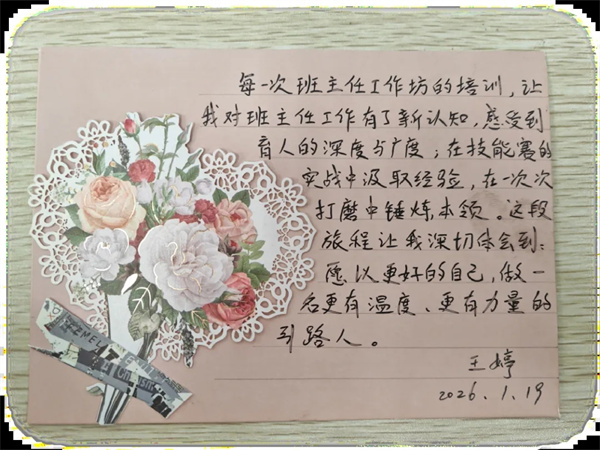 每一次班主任工作坊的培训，让
我对班主任工作有了新认知，感受到
育人的深度与广度；在技能赛的
实战中汲取经验，在一次次
打磨中锤炼本领。这段
旅程让我深切体会到：
愿以更好的自己，做一
名更有温度、更有力量的
引路人。
王婷
2026.1.19